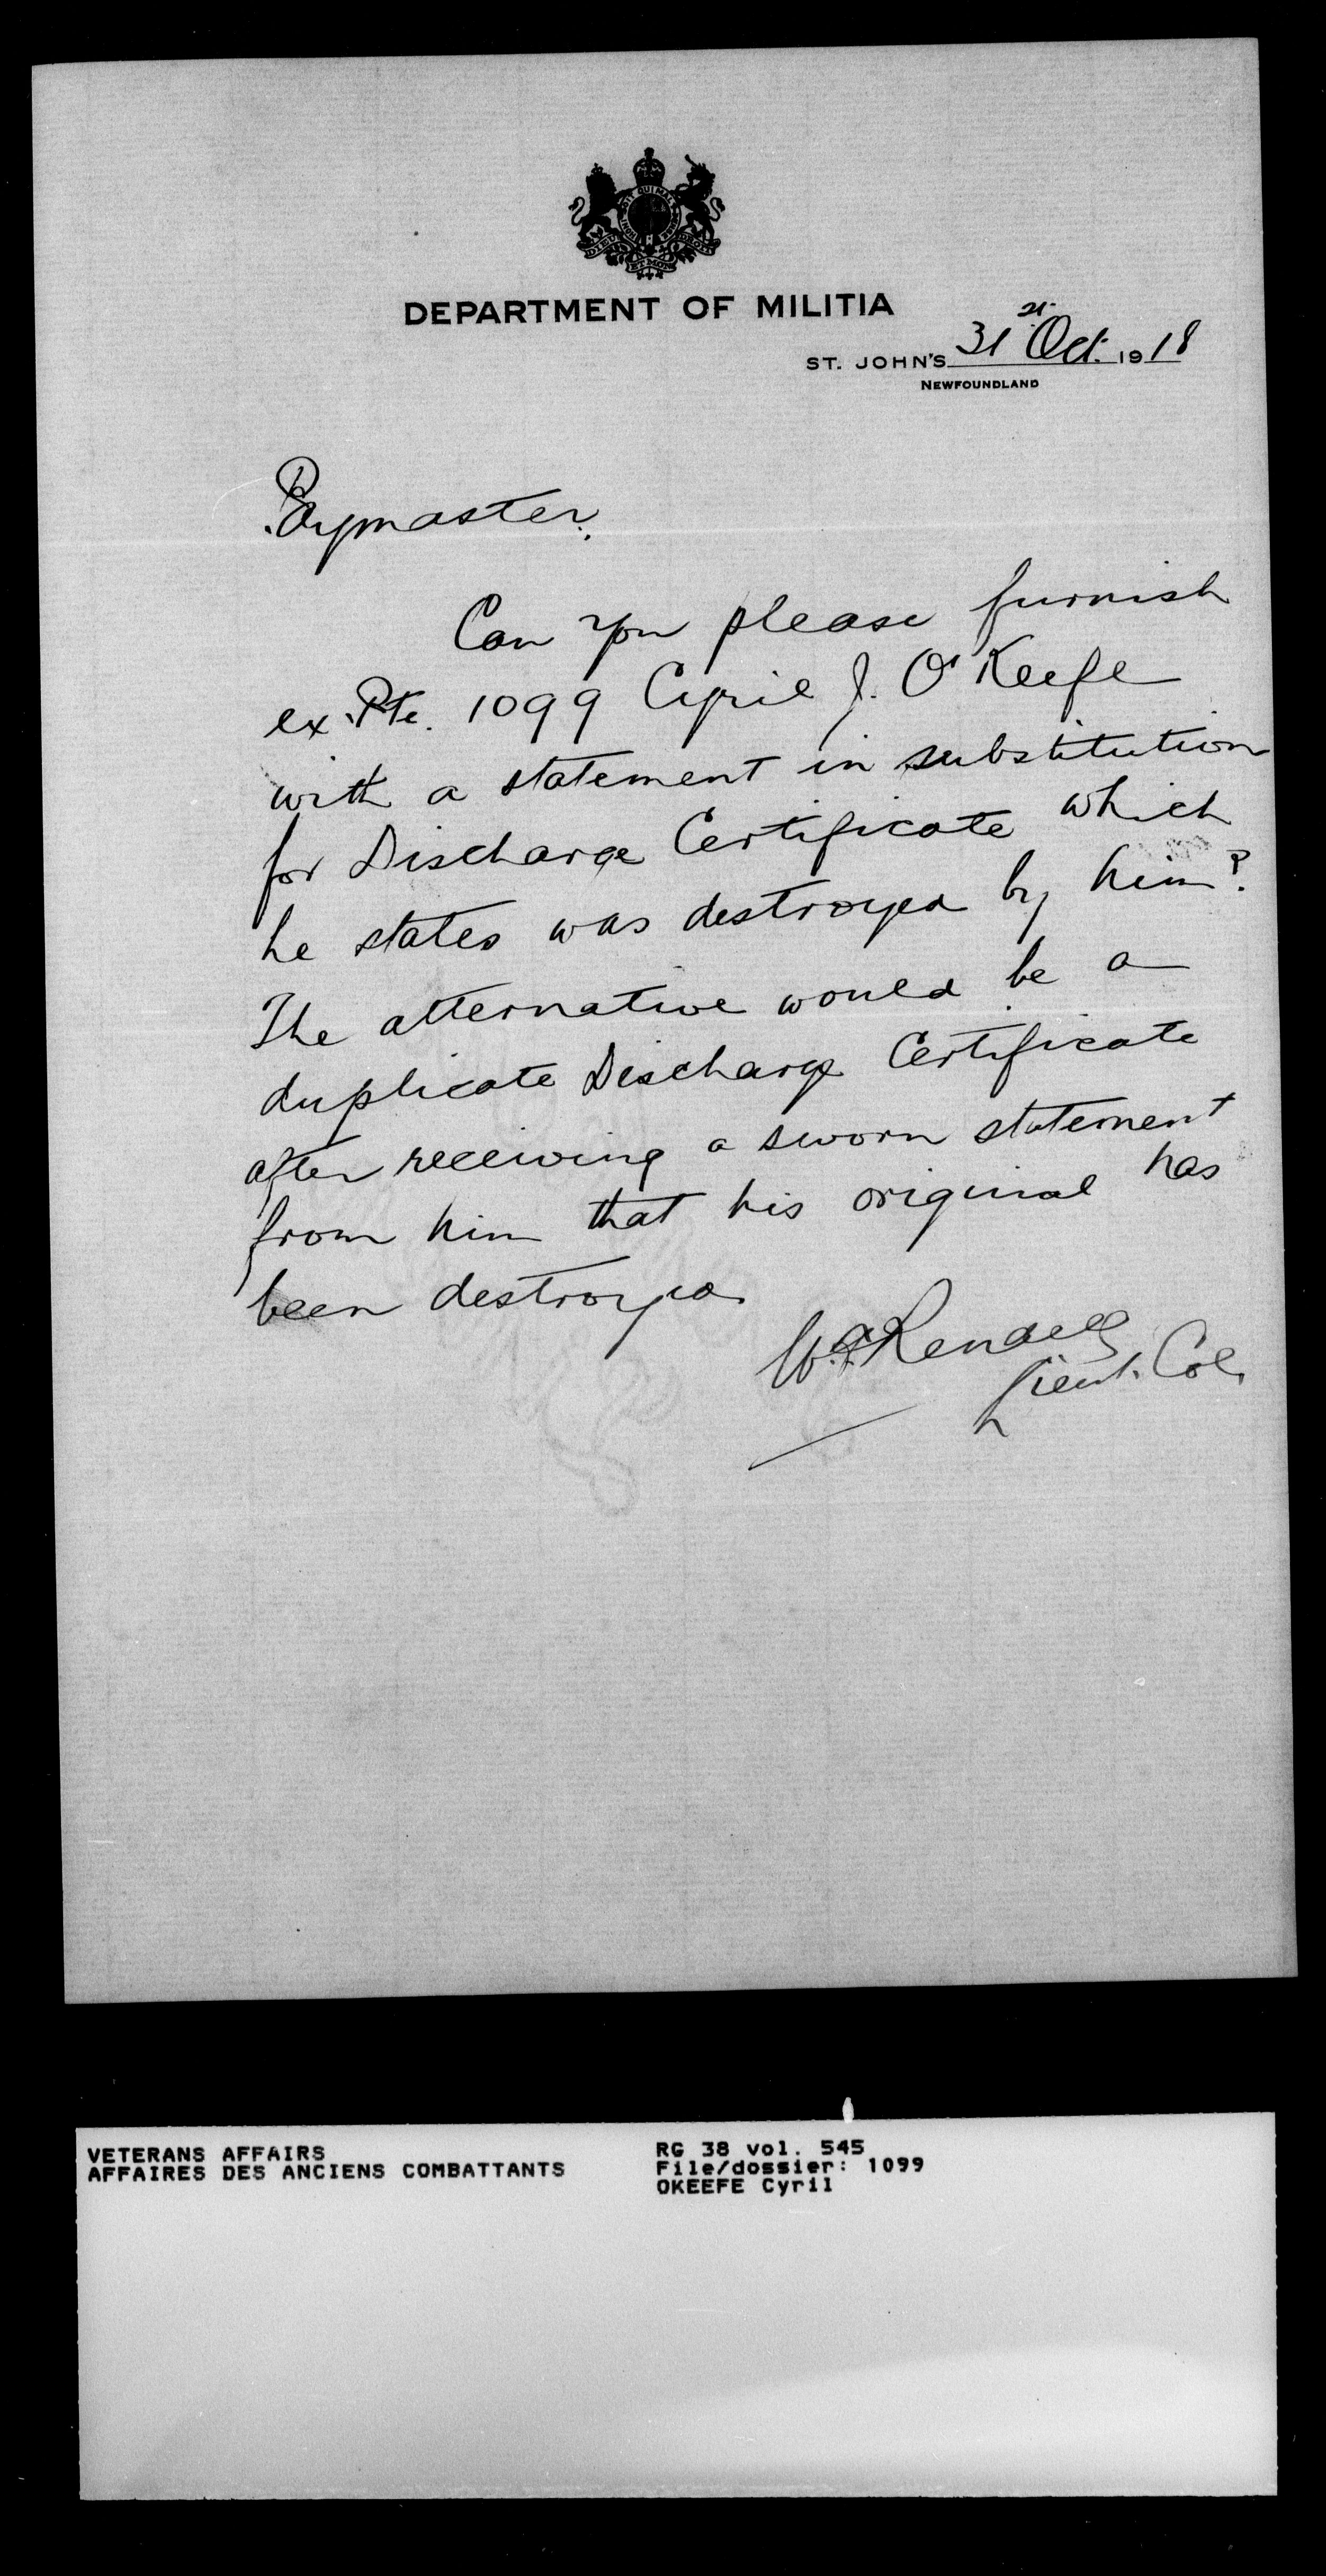 HONI SOIT QUI MAL Y PENSE
DIEU ET MON DROIT
DEPARTMENT OF MILITIA
ST. JOHN'S 31st Oct. 1918
NEWFOUNDLAND
Paymaster.
Can you please furnish
ex. Pte. 1099 Cyril J. O'Keefe
with a statement in substitution
for Discharge Certificate which
he states was destroyed by him?
The alternative would be a
duplicate Discharge Certificate
after receiving a sworn statement
from him that his original has
been destroyed.
W.F. Rendell
Lieut. Col.
VETERANS AFFAIRS
AFFAIRES DES ANCIENS COMBATTANTS
RG 38 vol. 545
File/dossier: 1099
OKEEFE Cyril